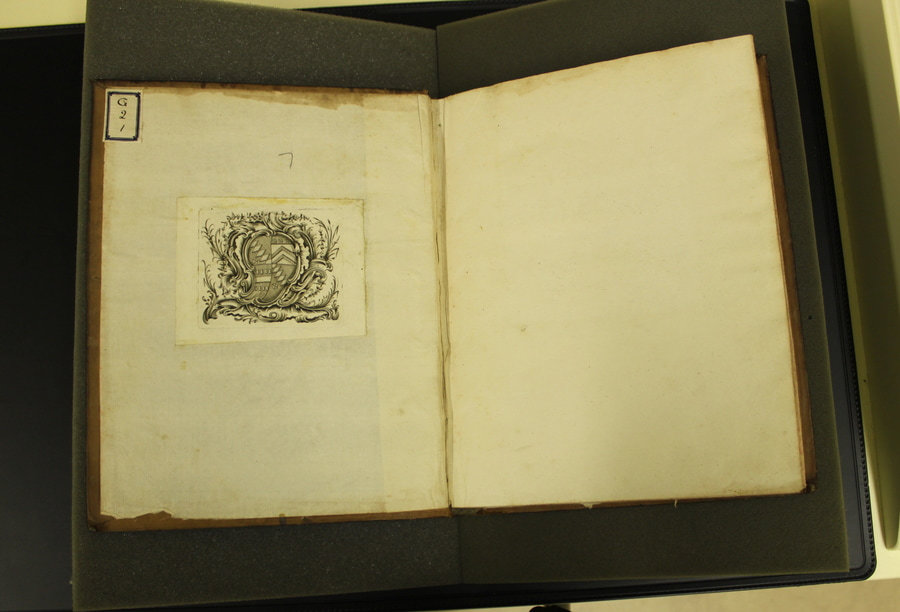 G
2
1
7